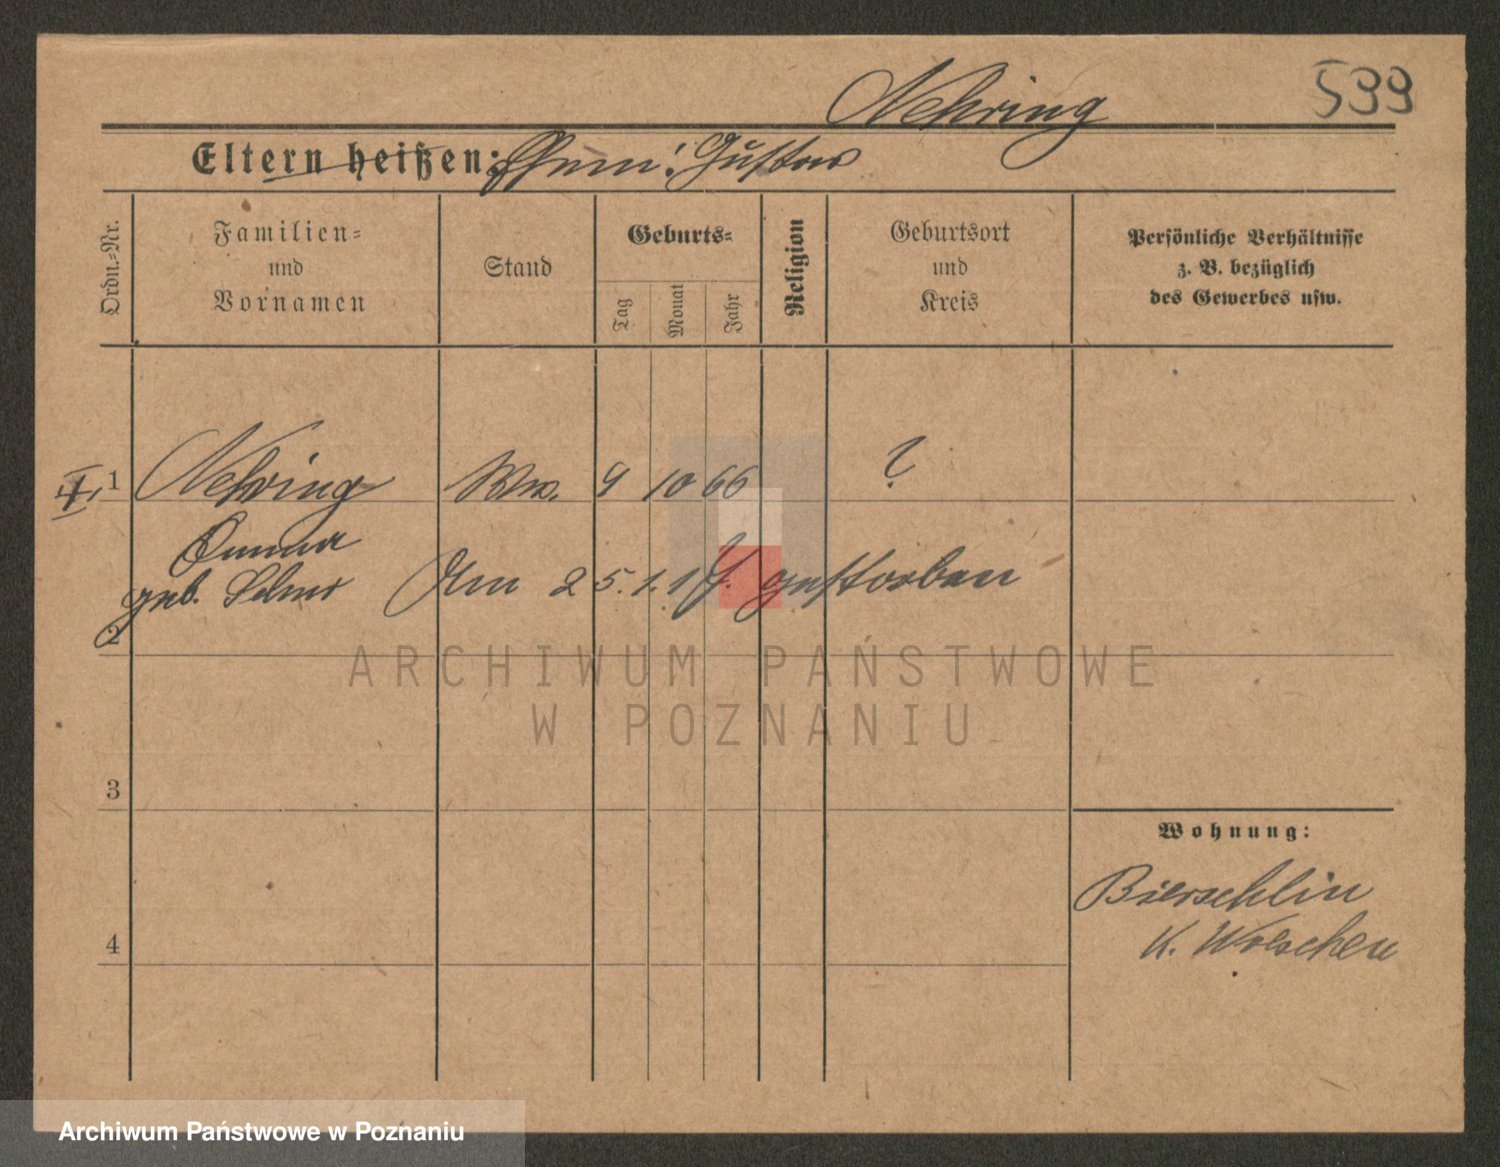 Nehring
599
Eltern heißen: Ehem: Gustav
Ordn.-Nr.
Familien-
und
Vornamen
Stand
Geburts-
Tag
Monat
Jahr
Religion
Geburtsort
und
Kreis
Persönliche Verhältnisse
z. B. bezüglich
des Gewerbes usw.
1 Nehring Ww. 9 10 66 ?
Emma
geb. Am 25.1.17. gestorben
2
ARCHIWUM PAŃSTWOWE
W POZNANIU
3
Wohnung:
Bierschlin
K. Wreschen
4
Archiwum Państwowe w Poznaniu